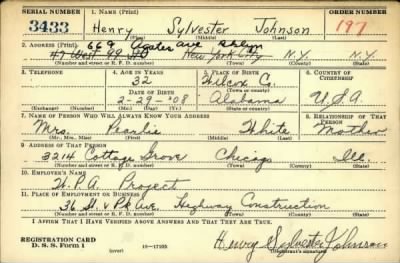 SERIAL NUMBER 1. NAME (Print) ORDER NUMBER
3433 Henry Sylvester Johnson 197
(First) (Middle) (Last)
2. ADDRESS (Print) 669 Gates Ave Bklyn
47 West 99 New York City N.Y. N.Y.
(Number and street or R. F. D. number) (Town) (County) (State)
3. TELEPHONE 4. AGE IN YEARS 5. PLACE OF BIRTH 6. COUNTRY OF CITIZENSHIP
32 Wilcox Co.
DATE OF BIRTH (Town or county)
2-29-'08 Alabama U.S.A.
(Exchange) (Number) (Mo.) (Day) (Yr.) (State or country)
7. NAME OF PERSON WHO WILL ALWAYS KNOW YOUR ADDRESS 8. RELATIONSHIP OF THAT PERSON
Mrs. Pearlie White Mother
(Mr., Mrs., Miss) (First) (Middle) (Last)
9. ADDRESS OF THAT PERSON
3214 Cottage Grove Chicago Ill.
(Number and street or R. F. D. number) (Town) (County) (State)
10. EMPLOYER'S NAME
W.P.A. Project
11. PLACE OF EMPLOYMENT OR BUSINESS
36 St. & Pk Ave. Highway Construction
(Number and street or R. F. D. number) (Town) (County) (State)
I AFFIRM THAT I HAVE VERIFIED ABOVE ANSWERS AND THAT THEY ARE TRUE.
REGISTRATION CARD
D. S. S. Form 1 (over) 16—17105 Henry Sylvester Johnson